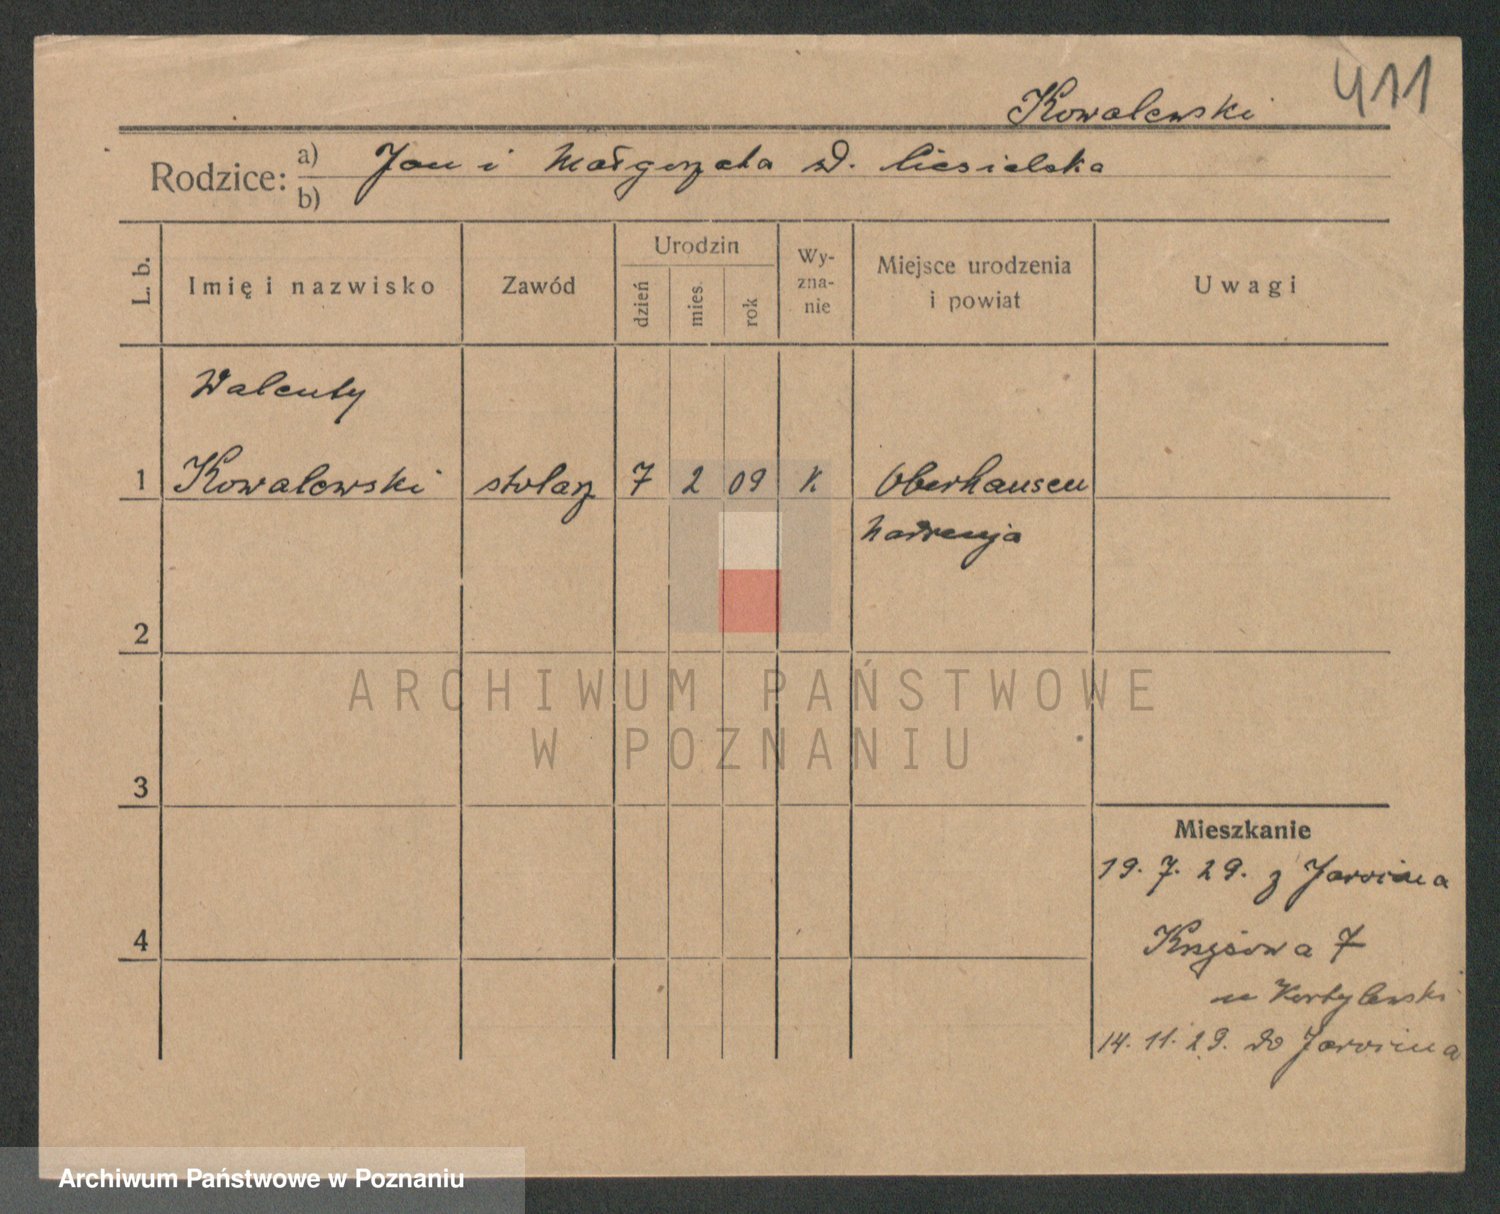 411
Kowalewski
Rodzice: a) Jan i Małgorzata d. Ciesielska
b)
L. b. Imię i nazwisko Zawód Urodzin dzień mies. rok Wy-zna-nie Miejsce urodzenia i powiat Uwagi
Walenty
1 Kowalewski stolarz 7 2 09 k. Oberhausen
Nadrenja
2
ARCHIWUM PAŃSTWOWE
W POZNANIU
3
Mieszkanie
19. 7. 29. z
4
7
u
14. 11. 29. do
Archiwum Państwowe w Poznaniu